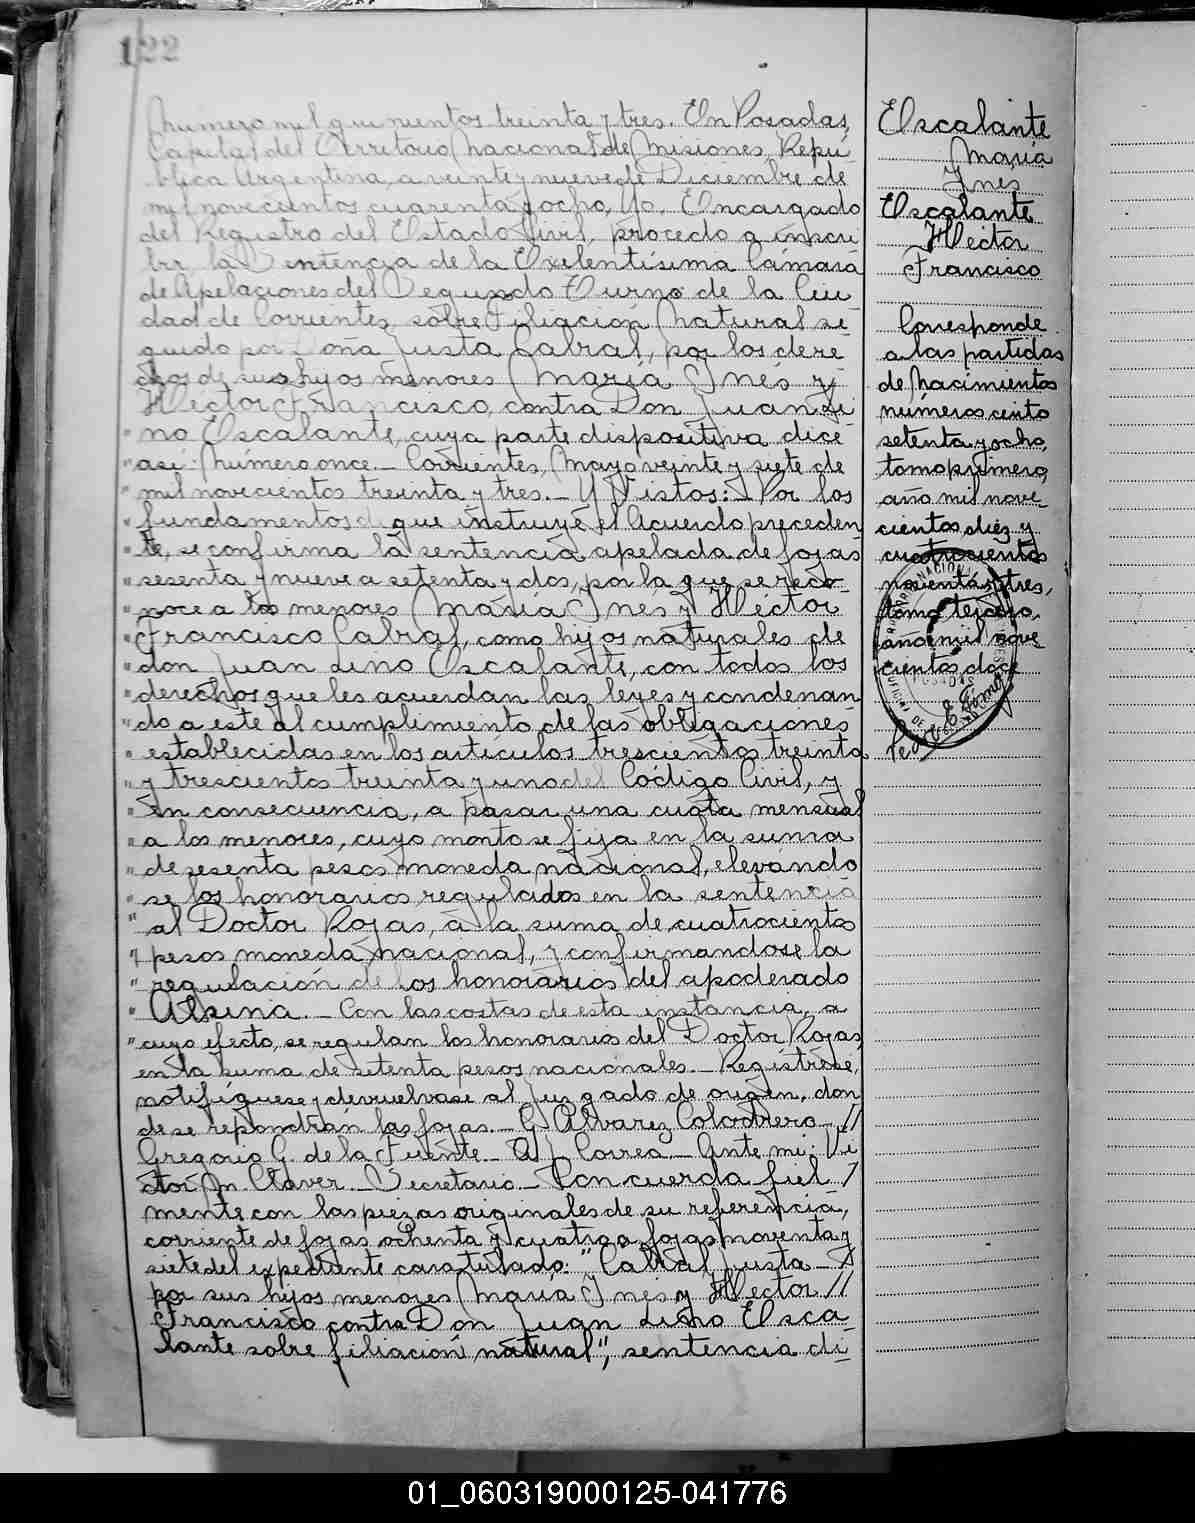 122
Número mil quinientos treinta y tres. En Posadas,
Capital del Territorio Nacional de Misiones, Repú-
blica Argentina, a veinte y nueve de Diciembre de
mil novecientos cuarenta y ocho, Yo, Encargado
del Registro del Estado Civil, procedo a inscri-
bir la Sentencia de la Exelentísima Cámara
de Apelaciones del Segundo Turno de la Ciu
dad de Corrientes, sobre Filiación Natural se-
guido por Doña Justa Cabral, por los dere-
chos de sus hijos menores María Inés y
Héctor Francisco, contra Don Juan Li
" no Escalante, cuya parte dispositiva dice
" así: Número once.- Corrientes, Mayo veinte y siete de
" mil novecientos treinta y tres.- Y Vistos: - Por los
" fundamentos de que instruye el Acuerdo preceden
" te, se confirma la sentencia apelada de fojas
" sesenta y nueve a setenta y dos, por la que se reco-
" noce a los menores María Inés y Héctor
" Francisco Cabral, como hijos naturales de
" don Juan Lino Escalante, con todos los
" derechos que les acuerdan las leyes y condenan
" do a este al cumplimiento de las obligaciones
" establecidas en los artículos trescientos treinta
" y trescientos treinta y uno del Código Civil, y
" en consecuencia, a pasar una cuota mensual
" a los menores, cuyo monto se fija en la suma
" de sesenta pesos moneda nacional, elevando
" se los honorarios regulados en la sentencia
" al Doctor Rojas, a la suma de cuatrocientos
" pesos moneda nacional, y confirmandose la
" regulación de los honorarios del apoderado
" Alsina.- Con las costas de esta instancia, a
" cuyo efecto, se regulan los honorarios del Doctor Rojas,
en la suma de setenta pesos nacionales.- Regístrese,
notifíquese y devuelvase al Juzgado de origen, don
de se repondrán las fojas.- G. Alvarez Colodrero - //
Gregorio G. de la Fuente - A. J. Correa - Ante mi: Vi
ctor M. Claver. - Secretario - Concuerda fiel /
mente con las piezas originales de su referencia,
corriente de fojas ochenta y cuatro a fojas noventa y
siete del expediente caratulado: "Cabral Justa -
por sus hijos menores María Inés y Héctor //
Francisco contra Don Juan Lino Esca
lante sobre filiación natural", sentencia di-
Escalante
María
Ynés
Escalante
Héctor
Francisco
Corresponde
a las partidas
de Nacimientos
números ciento
setenta y ocho,
tomo primero,
año mil nove-
cientos diez y
cuatrocientos
noventa y tres,
tomo tercero,
año mil nove
cientos doce
01_060319000125-041776